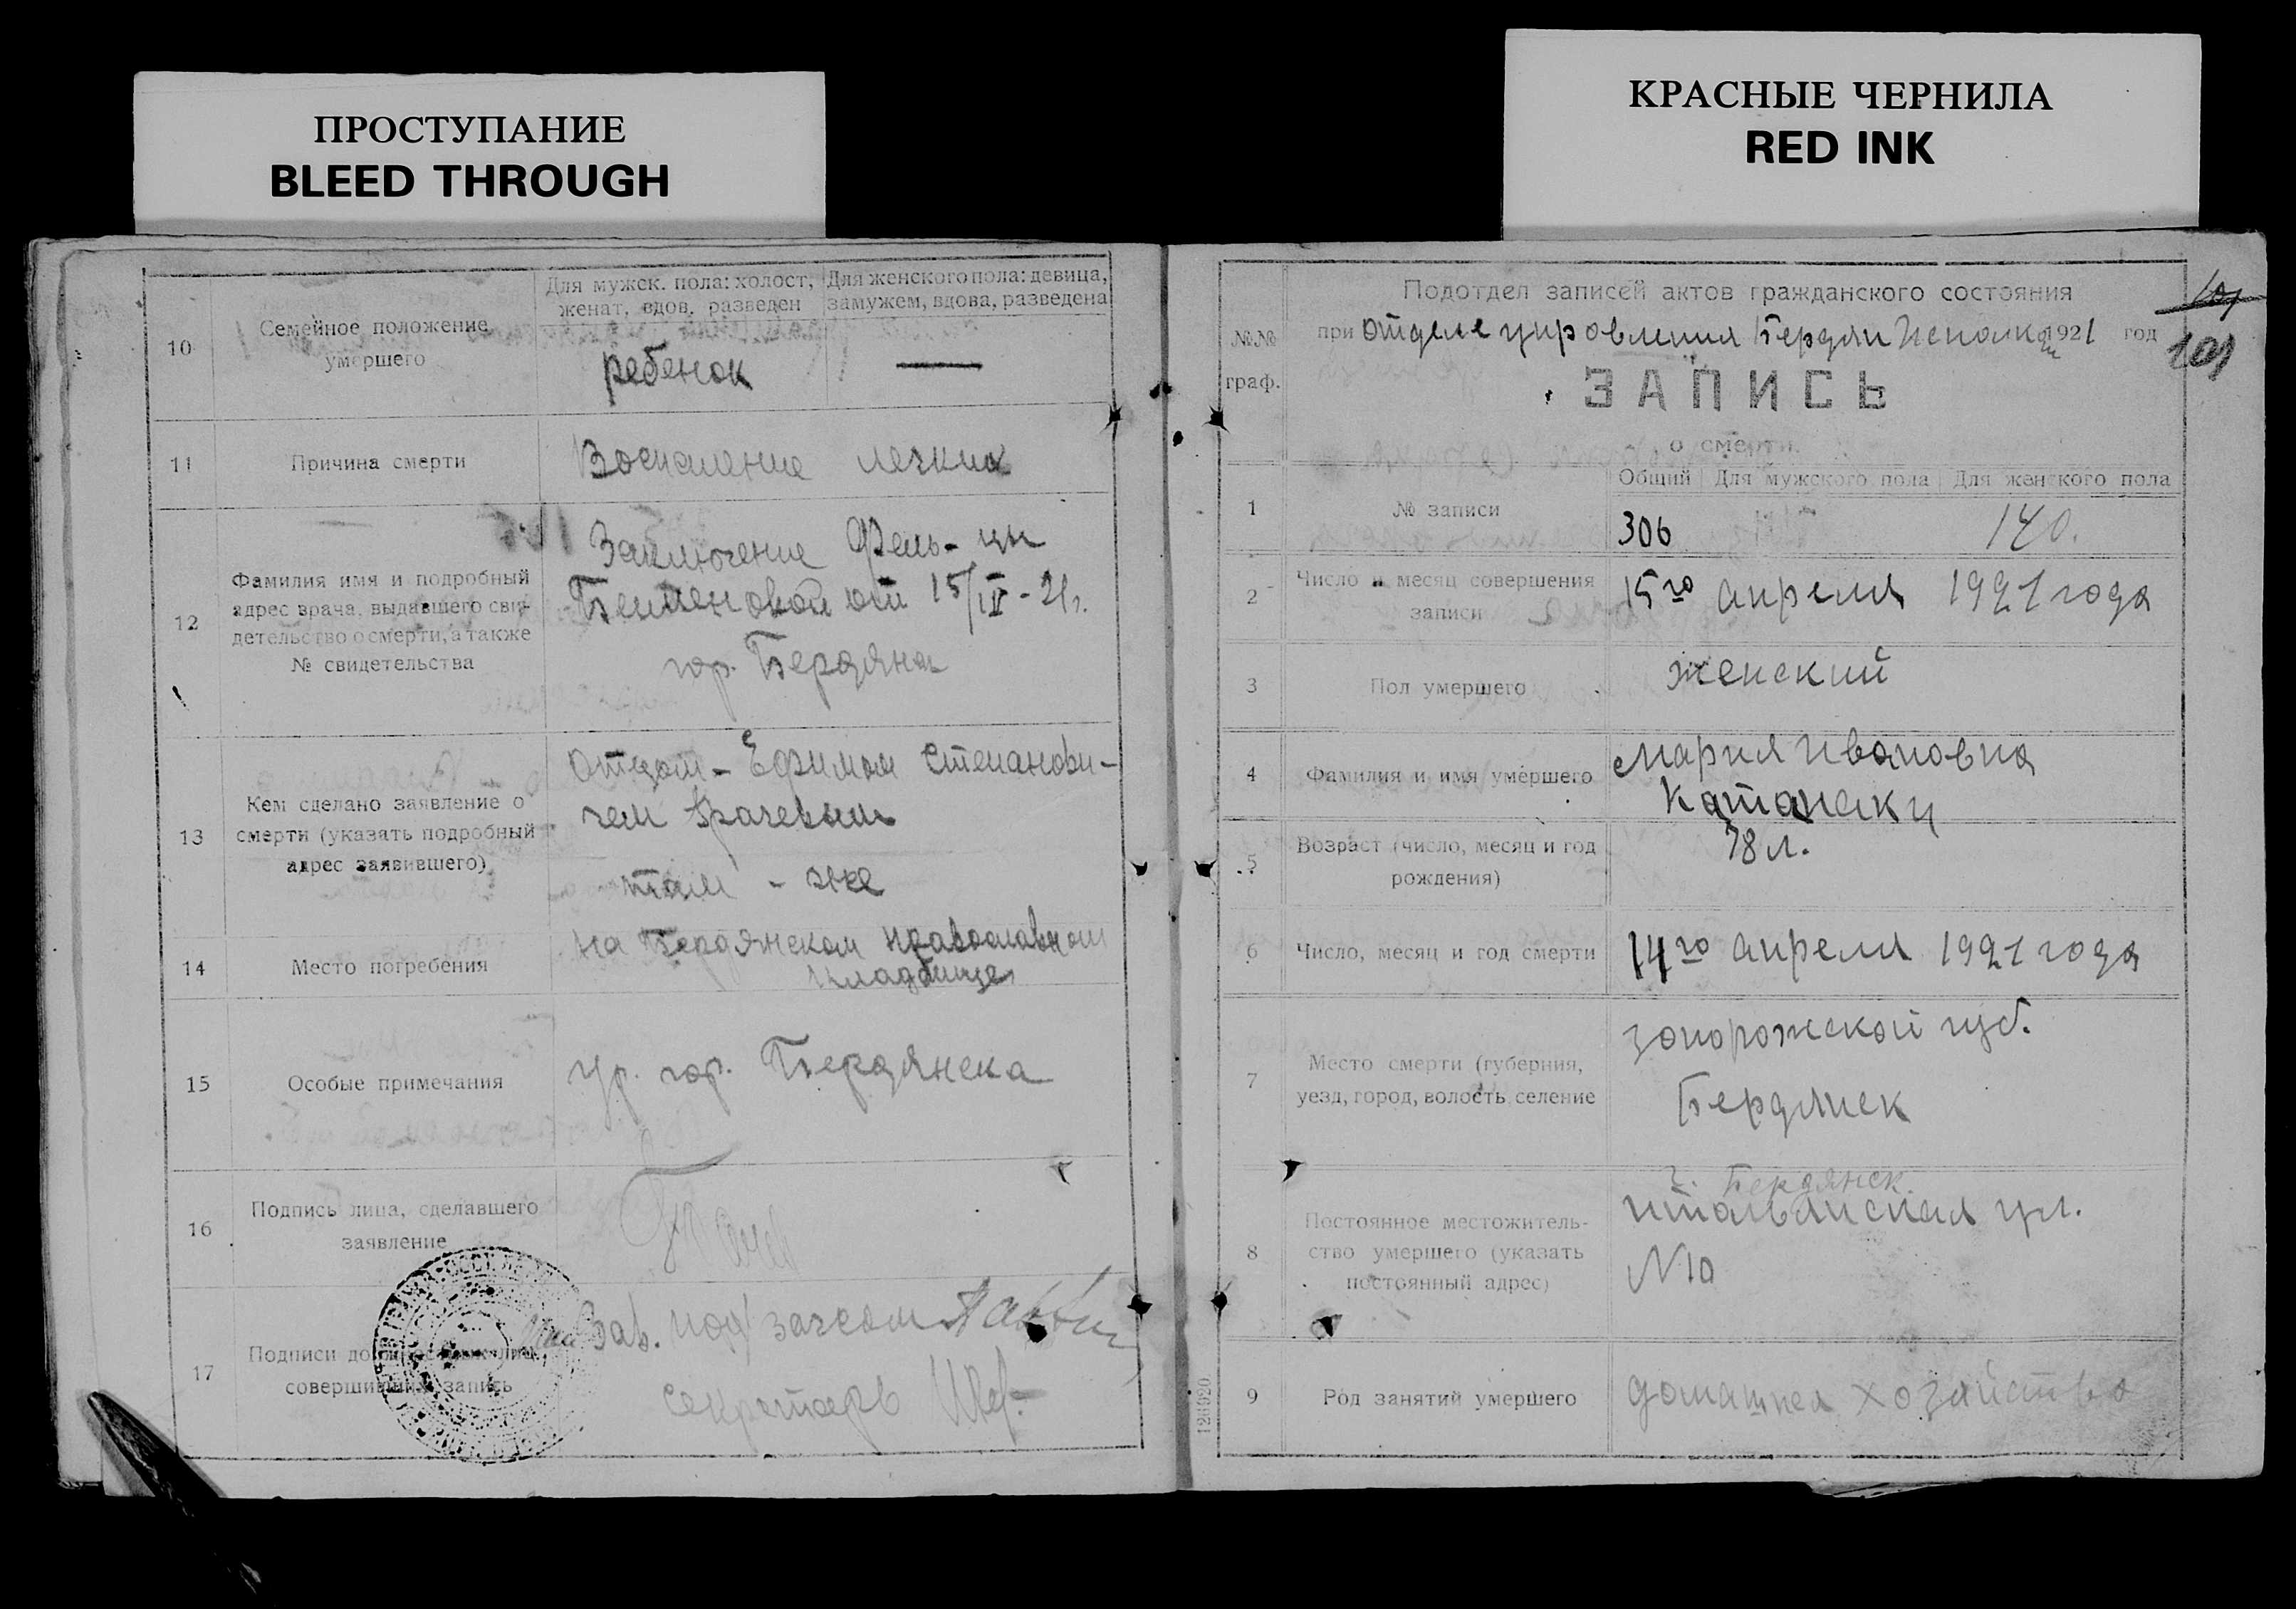 ПРОСТУПАНИЕ
BLEED THROUGH
КРАСНЫЕ ЧЕРНИЛА
RED INK
10
Семейное положение
умершего
Для мужск. пола: холост,
женат, вдов, разведен
Для женского пола: девица,
замужем, вдова, разведена
ребенок
11
Причина смерти
Воспаление легких
12
Фамилия имя и подробный
адрес врача, выдавшего сви-
детельство о смерти, а также
№ свидетельства
Заключение
от 15/IV-21г.
гор. Бердянск
13
Кем сделано заявление о
смерти (указать подробный
адрес заявившего)
Отцом - Ефимом Степанови-
чем
там - же
14
Место погребения
на Бердянском православном
кладбище
15
Особые примечания
гр. гор. Бердянска
16
Подпись лица, сделавшего
заявление
17
Подписи должностных лиц,
совершивших запись
Зав. под
секретарь
№№
граф.
Подотдел записей актов гражданского состояния
при отделе управления Бердян 1921 год
101
101
ЗАПИСЬ
о смерти.
1
№ записи
Общий Для мужского пола Для женского пола
306 140.
2
Число и месяц совершения
записи
15го апреля 1921 года
3
Пол умершего
женский
4
Фамилия и имя умершего
Мария Ивановна
5
Возраст (число, месяц и год
рождения)
78 л.
6
Число, месяц и год смерти
14го апреля 1921 года
7
Место смерти (губерния,
уезд, город, волость, селение
Запорожской губ.
Бердянск
8
Постоянное местожитель-
ство умершего (указать
постоянный адрес)
г. Бердянск
итальянская ул.
N10
9
Род занятий умершего
домашнея хозяйства
126920